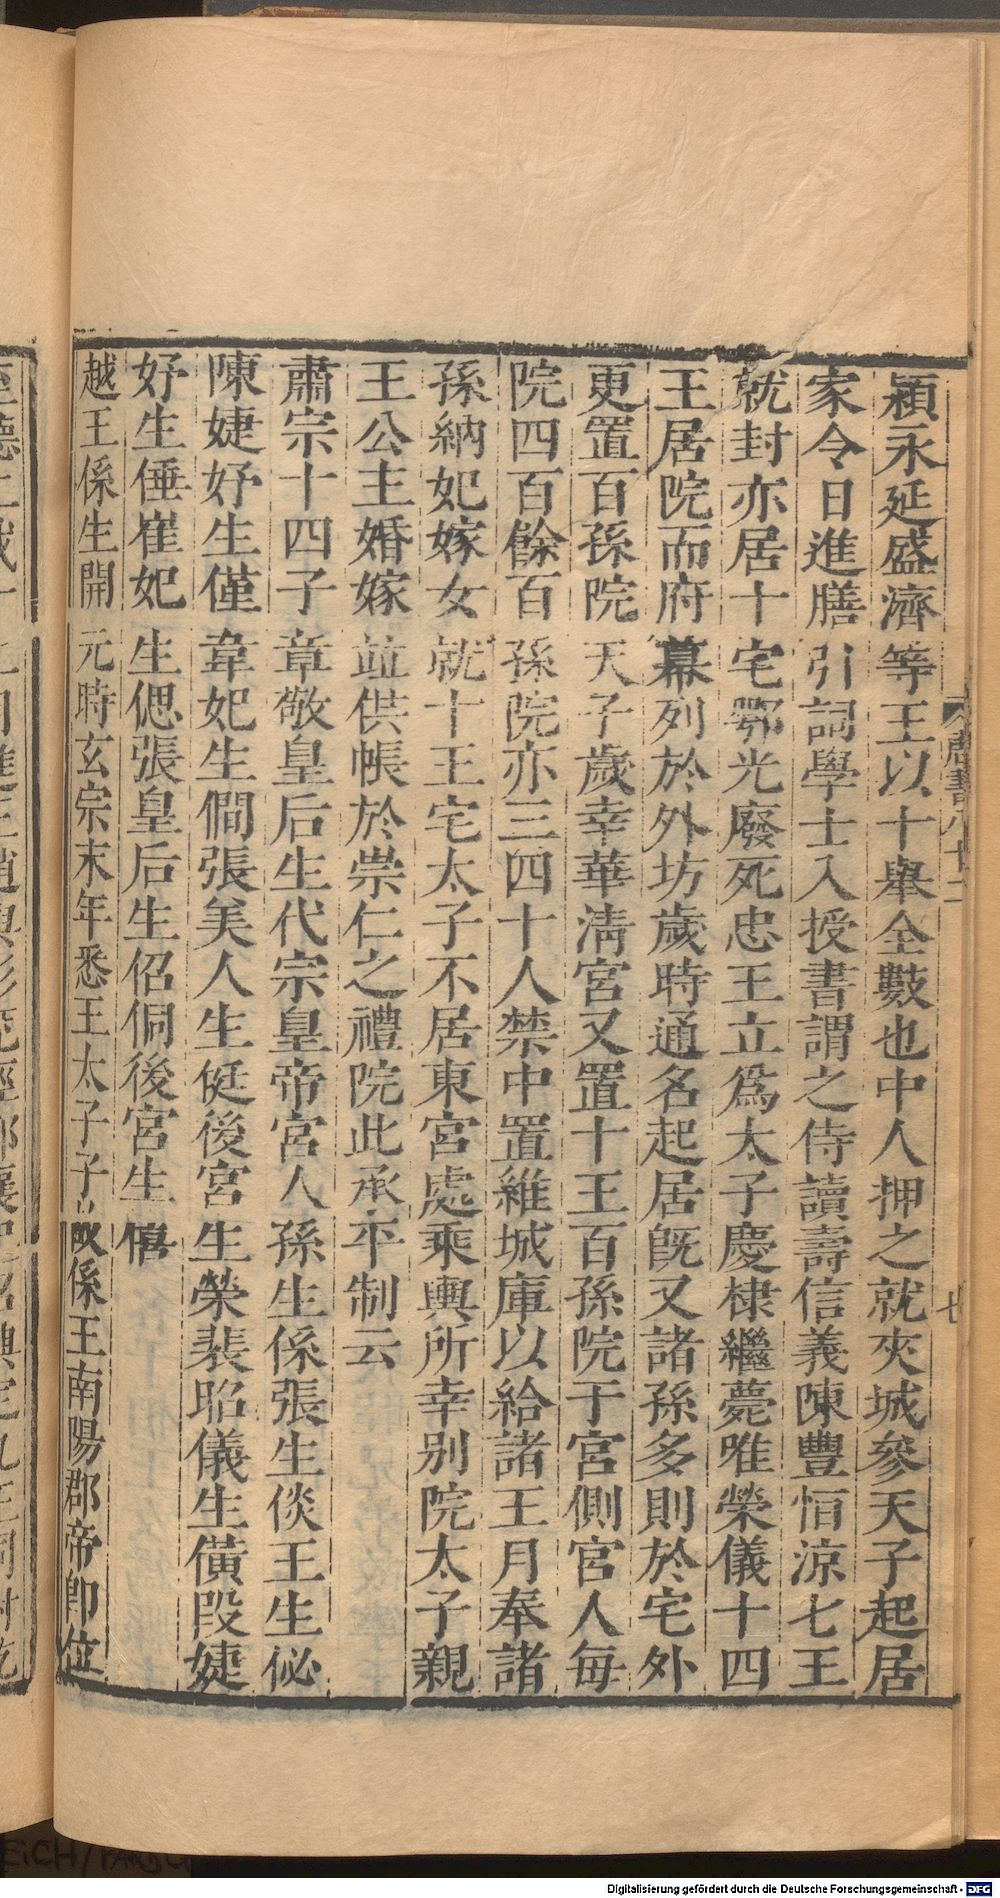 潁永延盛濟等王以十舉全數也中人押之就夾城參天子起居
家令日進膳引詞學士入授書謂之侍讀壽信義陳豐恒涼七王
就封亦居十宅鄂光廢死忠王立爲太子慶棣繼薨唯榮儀十四
王居院而府幕列於外坊歲時通名起居旣又諸孫多則於宅外
更置百孫院天子歲幸華淸宮又置十王百孫院于宮側宮人每
院四百餘百孫院亦三四十人禁中置維城庫以給諸王月奉諸
孫納妃嫁女就十王宅太子不居東宮處乘輿所幸别院太子親
王公主婚嫁竝供帳於崇仁之禮院此承平制云
肅宗十四子章敬皇后生代宗皇帝宮人孫生係張生倓王生佖
陳婕妤生僅韋妃生僩張美人生侹後宮生榮裴昭儀生僙段婕
妤生倕崔妃生偲張皇后生佋侗後宮生僖
越王係生開元時玄宗末年悉王太子子故係王南陽郡帝卽位
七
Digitalisierung gefördert durch die Deutsche Forschungsgemeinschaft - DFG